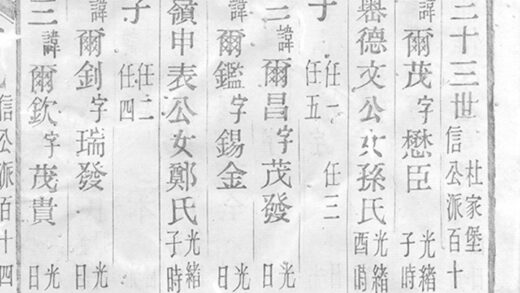 三十三世 杜家堡
信公派百十
諱爾茂字懋臣 光緒
子時
舉德文公女孫氏 光緒
酉時
子 任一 任三
任五
諱爾昌字茂發 光
日
諱爾鑑字錫金 光
日
嶺申表公女鄭氏 光緒
子時
子 任二
任四
諱爾釗字瑞發 光
日
三諱爾欽字茂貴 光
日
信公派百十四